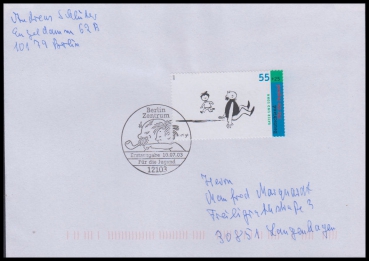 Andreas Schlüter
Engeldamm 62 B
10179 Berlin
55
Berlin
Zentrum
Erstausgabe 10.07.03
Für die Jugend
12103
Herrn
Manfred Marquardt
Freiligrathstraße 3
30851 Langenhagen